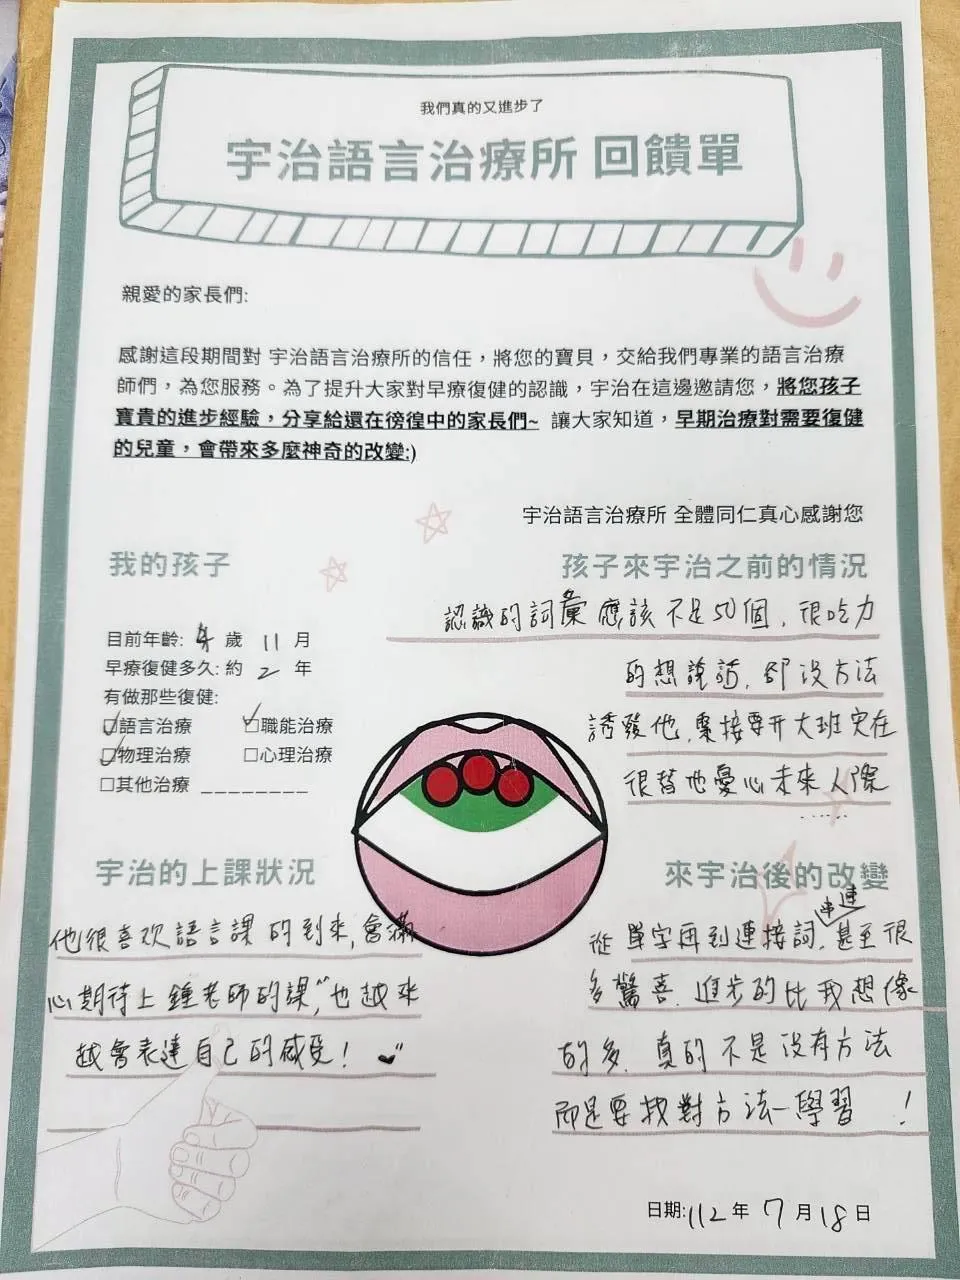 我們真的又進步了
宇治語言治療所 回饋單
親愛的家長們:
感謝這段期間對 宇治語言治療所的信任，將您的寶貝，交給我們專業的語言治療
師們，為您服務。為了提升大家對早療復健的認識，宇治在這邊邀請您，將您孩子
寶貴的進步經驗，分享給還在徬徨中的家長們~ 讓大家知道，早期治療對需要復健
的兒童，會帶來多麼神奇的改變:)
宇治語言治療所 全體同仁真心感謝您
我的孩子
目前年齡: 歲 11 月
早療復健多久: 約 2 年
有做那些復健:
☑語言治療 ☑職能治療
☑物理治療 □心理治療
□其他治療 ________
孩子來宇治之前的情況
認識的詞彙應該不足50個，很吃力
的想說話，卻沒方法
誘發他，緊接要升大班實在
很替他憂心未來人際
......
宇治的上課狀況
他很喜歡語言課的到來，會滿
心期待上鍾老師的課，也越來
越會表達自己的感受！
來宇治後的改變
從單字再到連接詞串連，甚至很
多驚喜，進步的比我想像
的多，真的不是沒有方法
而是要找對方法學習！
日期:112年 7月18日